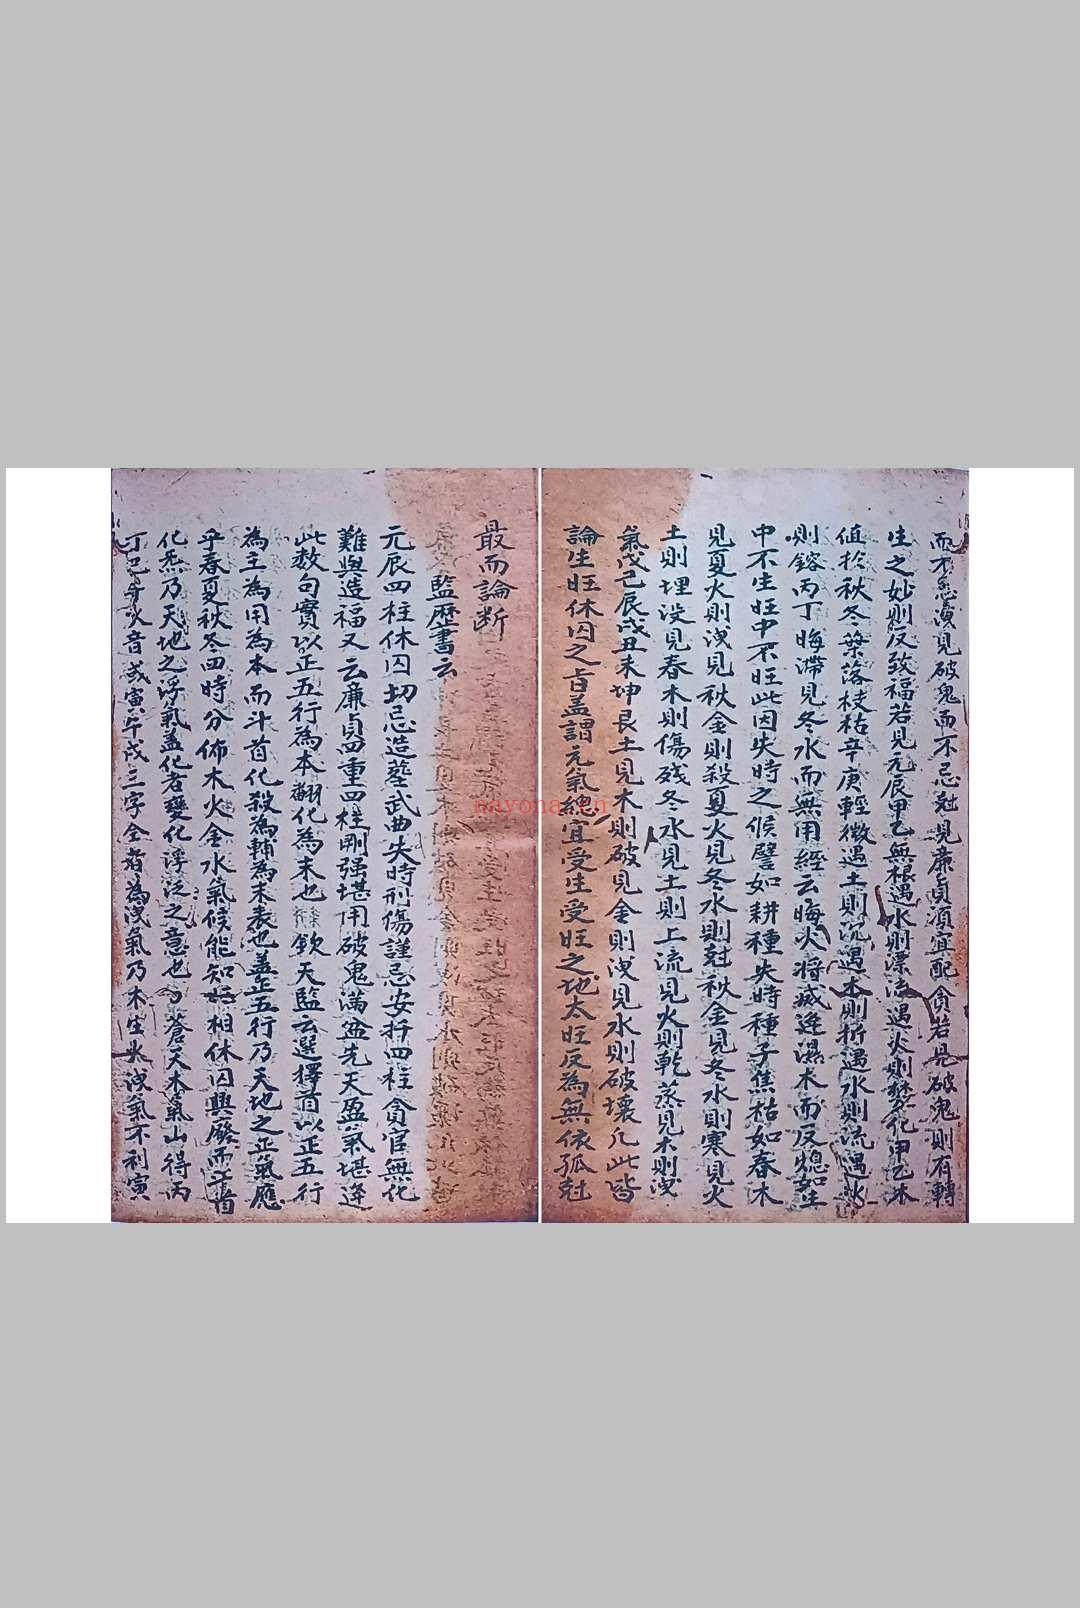 而不忌須見破鬼而不忌尅見廉貞須宜配貪若見破鬼則有轉
生之妙則反致福若見元辰甲乙無根遇水則漂流遇火則焚化甲乙木
值於秋冬葉落枝枯辛庚輕微遇土則沉遇木則折遇水則流遇火
則鎔丙丁晦滯見冬水而無用經云晦火將滅逢濕木而反熄如生
中不生旺中不旺此因失時之候譬如耕種失時種子焦枯如春木
見夏火則洩見秋金則殺夏火見冬水則尅秋金見冬水則寒見火
土則埋没見春木則傷殘冬水見土則上流見火則乾蒸見木則洩
氣戊己辰戌丑未坤艮土見木則破見金則洩見水則破壞凡此皆
論生旺休囚之旨盖謂元氣總宜受生受旺之地太旺反為無依孤尅
最而論断
監歷書云
元辰四柱休囚切忌造塟武曲失時刑傷謹忌安扦四柱貪官無化
難與造福又云廉貞重四柱剛强堪用破鬼滿盆先天盈氣堪逢
此数句實以正五行為本翻化為末也欽天監云選擇首以正五行
為主為用為本而斗首化殺為輔為末表也盖正五行乃天地之正氣應
乎春夏秋冬四時分佈木火金水氣候能知 相休囚興廢而
化炁乃天地之浮氣盖化者變化浮泛之意也 蒼天木氣山得丙
丁巳 火音或寅午戌三字全者為洩氣乃木生火洩氣不利寅
nayona.cn